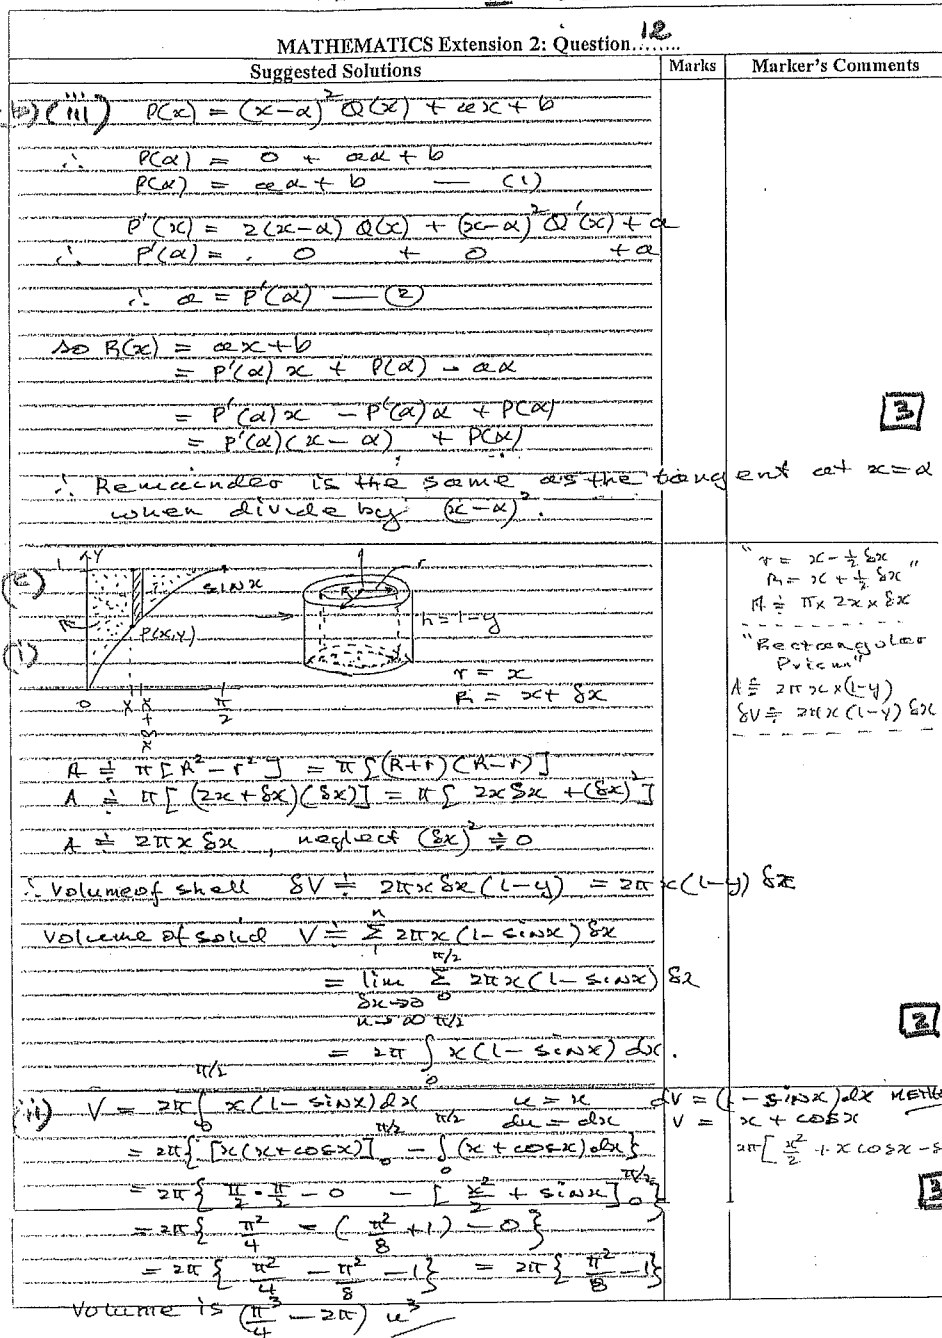 MATHEMATICS Extension 2: Question 12
Suggested Solutions
Marks
Marker's Comments
(b) (iii) P(x) = (x-α)² Q(x) + ax + b
∴ P(α) = 0 + aα + b
P(α) = aα + b — (1)
P'(x) = 2(x-α) Q(x) + (x-α)² Q'(x) + a
∴ P'(α) = 0 + 0 + a
∴ a = P'(α) — (2)
so R(x) = ax + b
= P'(α) x + P(α) - aα
= P'(α) x - P'(α) α + P(α)
= P'(α)(x - α) + P(α)
3
∴ Remainder is the same as the tangent at x = α
when divide by (x-α)².
(c)
(i)
1 Y
SIN x
P(x,y)
0 x x+δx π/2
R r
h = 1-y
r = x
R = x + δx
"r = x - ½ δx
R = x + ½ δx"
A ≑ π × 2x × δx
"Rectangular
Prism"
A ≑ 2πx × (1-y)
δV ≑ 2πx (1-y) δx
A ≑ π[R² - r²] = π[(R+r)(R-r)]
A ≑ π[(2x + δx)(δx)] = π[2xδx + (δx)²]
A ≑ 2πx δx, neglect (δx)² ≑ 0
∴ Volume of shell δV ≑ 2πx δx (1-y) = 2πx(1-y) δx
Volume of solid V ≑ Σ₁ⁿ 2πx (1- sin x) δx
= lim δx→0 n→∞ Σ₀^(π/2) 2πx (1- sin x) δx
2
= 2π ∫₀^(π/2) x(1- sin x) dx.
(ii) V = 2π ∫₀^(π/2) x(1- sin x) dx u = x dV = (1- sin x) dx
du = dx V = x + cos x
= 2π{[x(x+cos x)]₀^(π/2) - ∫₀^(π/2) (x + cos x) dx}
2π[x²/2 + x cos x - s
= 2π{π/2 · π/2 - 0 - [x²/2 + sin x]₀^(π/2)}
3
= 2π{π²/4 - (π²/8 + 1) - 0}
= 2π{π²/4 - π²/8 - 1} = 2π{π²/8 - 1}
Volume is (π³/4 - 2π) u³